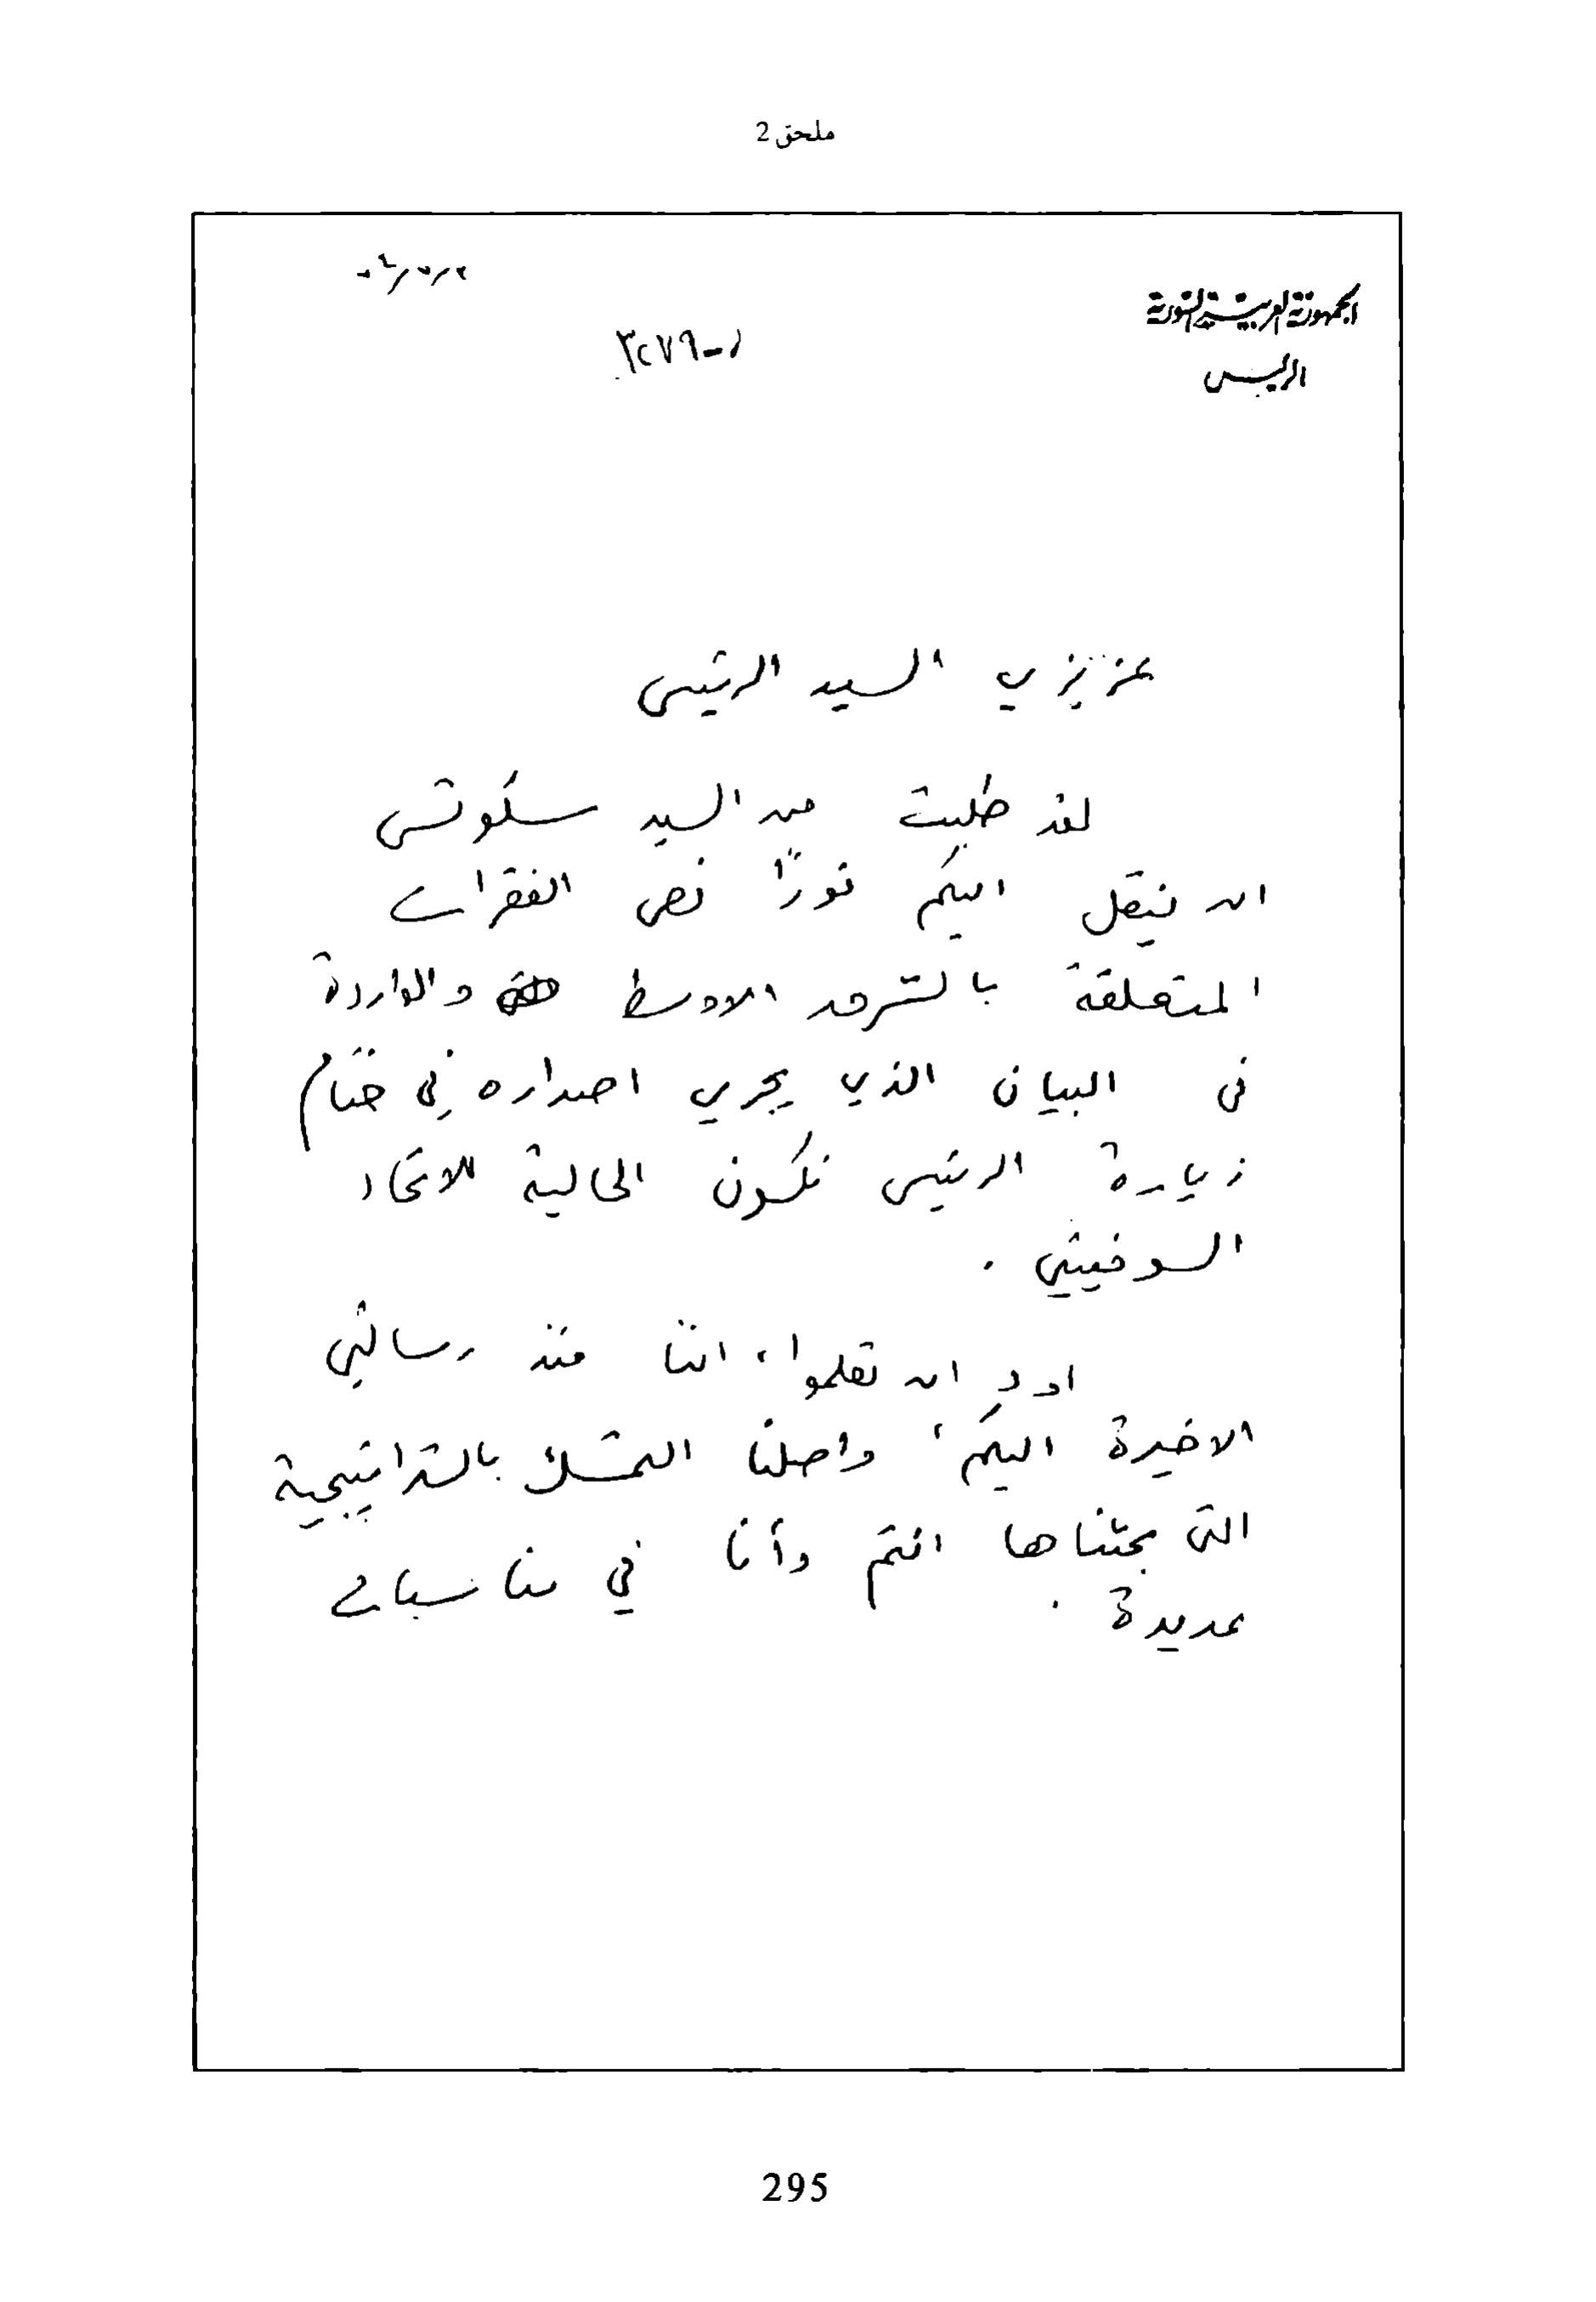 ملحق 2
الجمهورية العربية السورية
الرئيس
ر-٣٢٧٩
عزيزي السيد الرئيس
لقد طلبت من السيد سكوتس
ان ينقل اليكم فورًا نص الفقرات
المتعلقة بالشرق الاوسط والواردة
في البيان الذي يجري اصداره في ختام
زيارة الرئيس نكسون الحالية للاتحاد
السوفييتي .
اود ان تعلموا، اننا منذ رسالتي
الاخيرة اليكم، واصلنا التمسك بالستراتيجية
التي بحثناها انتم وأنا في مناسبات
عديدة .
295